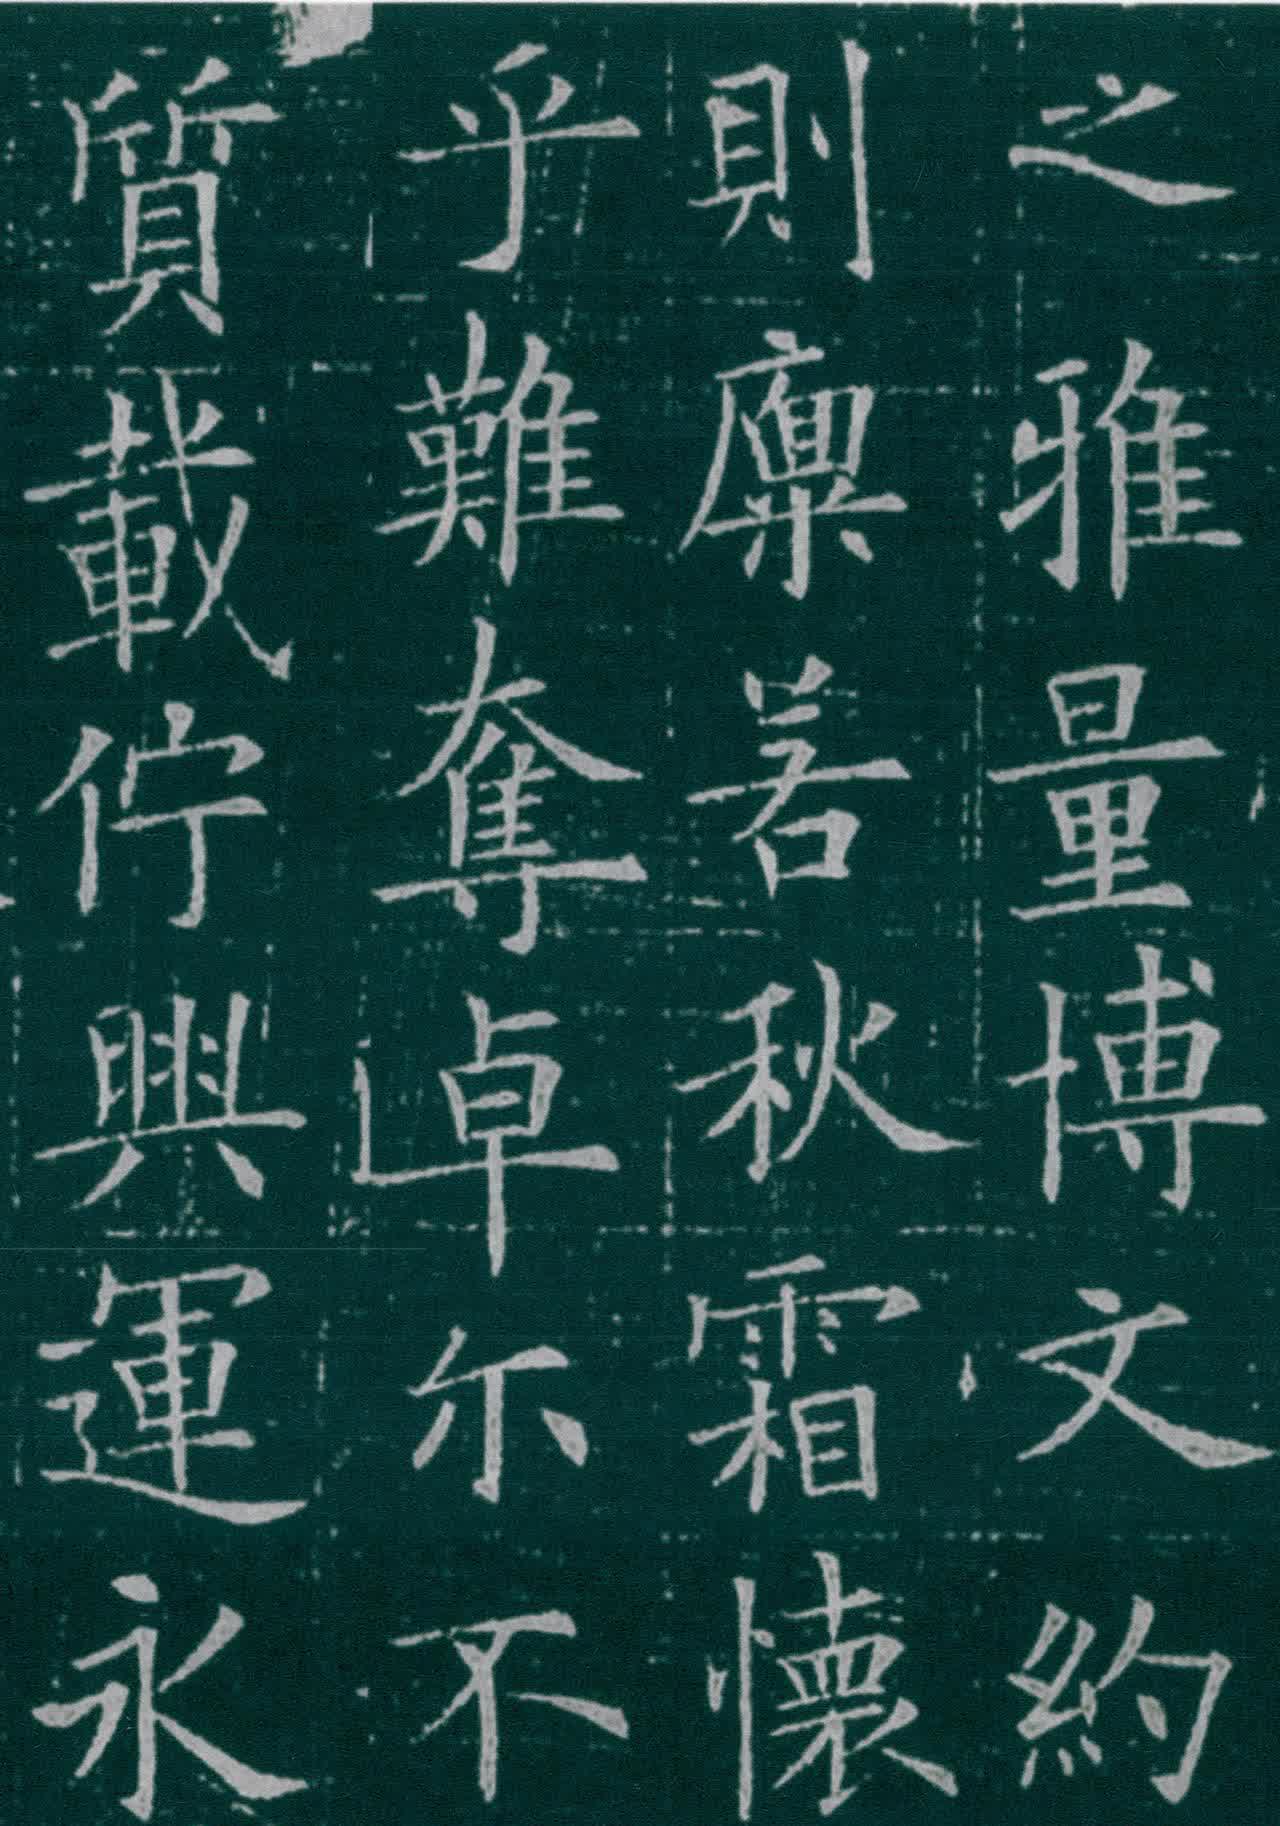 之雅量博文約
則廩若秋霜懷
乎難奪卓尓不
質載佇興運永